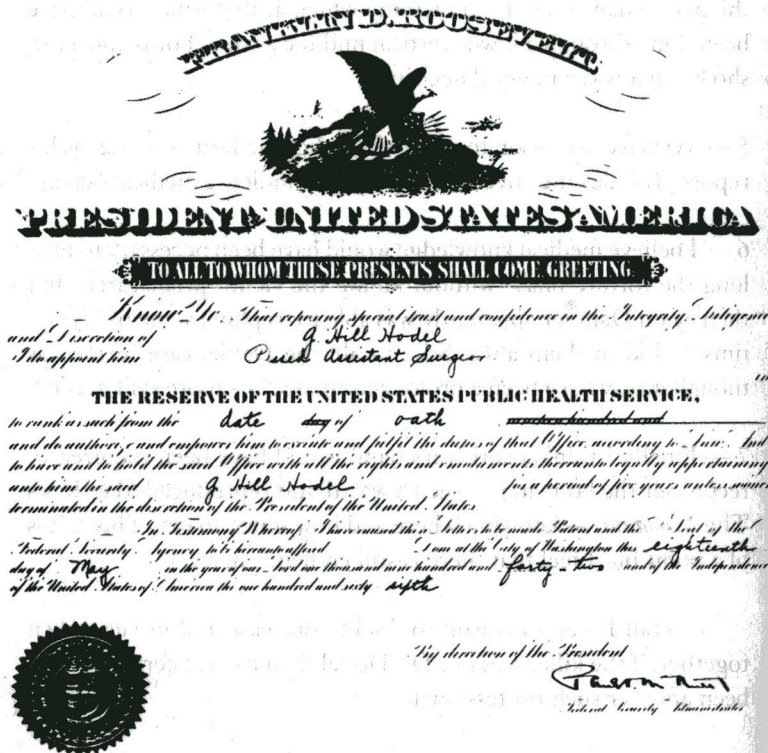 FRANKLIN D. ROOSEVELT
PRESIDENT UNITED STATES AMERICA
TO ALL TO WHOM THESE PRESENTS SHALL COME, GREETING.
Know Ye, That reposing special trust and confidence in the Integrity, Diligence
and Discretion of G Hill Hodel
I do appoint him Passed Assistant Surgeon
in
THE RESERVE OF THE UNITED STATES PUBLIC HEALTH SERVICE,
to rank as such from the date day of oath nineteen hundred and
and do authorize and empower him to execute and fulfil the duties of that Office according to Law: And
to have and to hold the said Office with all the rights and emoluments thereunto legally appertaining
unto him the said G Hill Hodel for a period of five years unless sooner
terminated in the discretion of the President of the United States.
In Testimony Whereof I have caused these Letters to be made Patent and the Seal of the
Federal Security Agency to be hereunto affixed. at the City of Washington this eighteenth
day of May in the year of our Lord one thousand nine hundred and forty-two and of the Independence
of the United States of America the one hundred and sixty sixth
By direction of the President
Federal Security Administrator